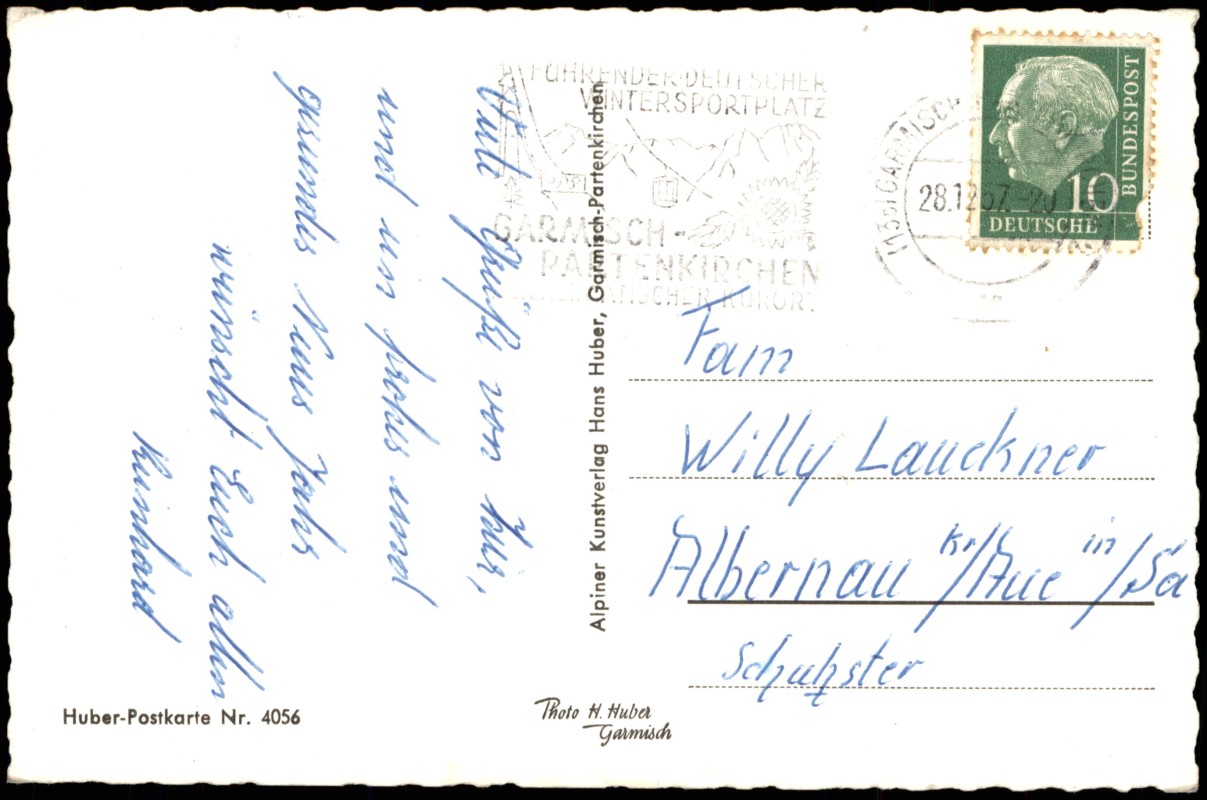 Viele Grüße von hier,
und ein frohes und
gesundes Neues Jahr
wünscht Euch allen
Reinhard
Alpiner Kunstverlag Hans Huber, Garmisch-Partenkirchen
Huber-Postkarte Nr. 4056
Photo H. Huber
Garmisch
FÜHRENDER DEUTSCHER
WINTERSPORTPLATZ
GARMISCH-
PARTENKIRCHEN
KURORT
GARMISCH
28.12.57.-20
BUNDESPOST
10
DEUTSCHE
Fam
Willy Lauckner
Albernau Kr/Aue in/Sa